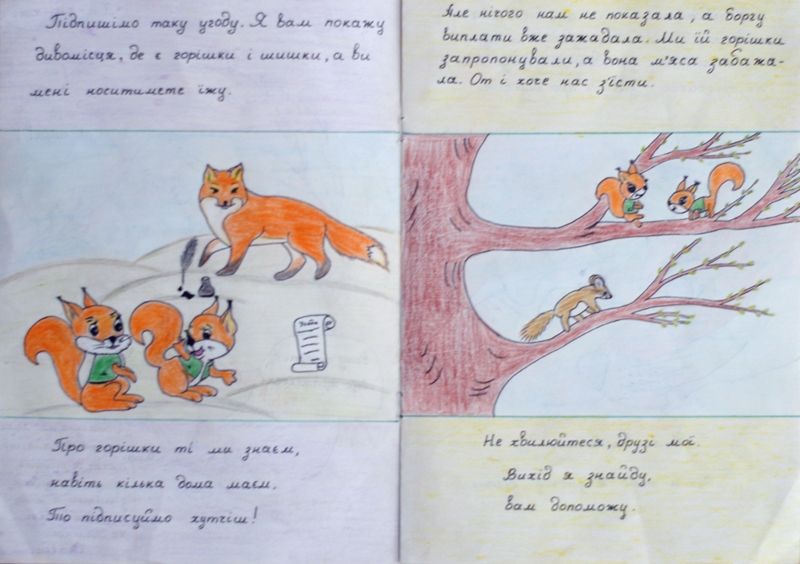 Підпишімо таку угоду. Я вам покажу
дивомісця, де є горішки і шишки, а ви
мені носитимете їжу.
Угода
Про горішки ті ми знаєм,
навіть кілька дома маєм.
То підписуймо хутчіш!
Але нічого нам не показала, а боргу
виплати вже зажадала. Ми їй горішки
запропонували, а вона м'яса забажа-
ла. От і хоче нас з'їсти.
Не хвилюйтеся, друзі мої.
Вихід я знайду,
вам допоможу.